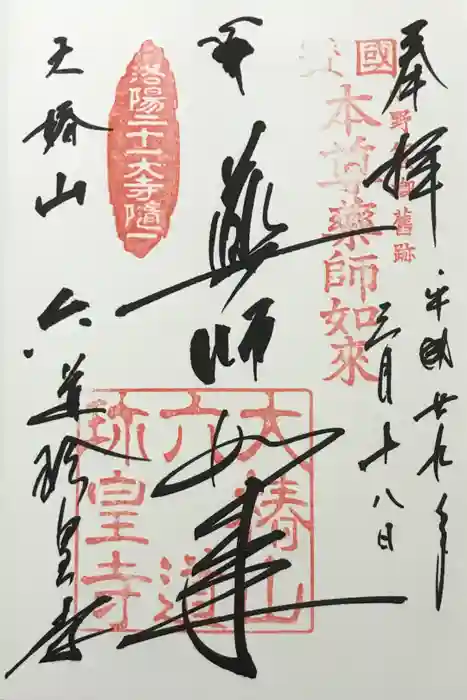 奉拝
平成廿九年
三月十八日
野篁卿舊跡
國寶
本尊藥師如來
薬師如来
洛陽二十一大寺隨一
大椿山
六道
珍皇寺
大椿山
六道珍皇寺